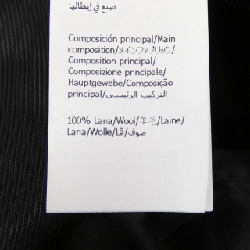 صنع في إيطاليا
Composición principal/Main
composition/
Composition principal/
Composizione principale/
Hauptgewebe/Composição
principal/التركيب الرئيسي
100% Lana/Wool/羊毛/Laine/
Lana/Wolle/Lã/صوف